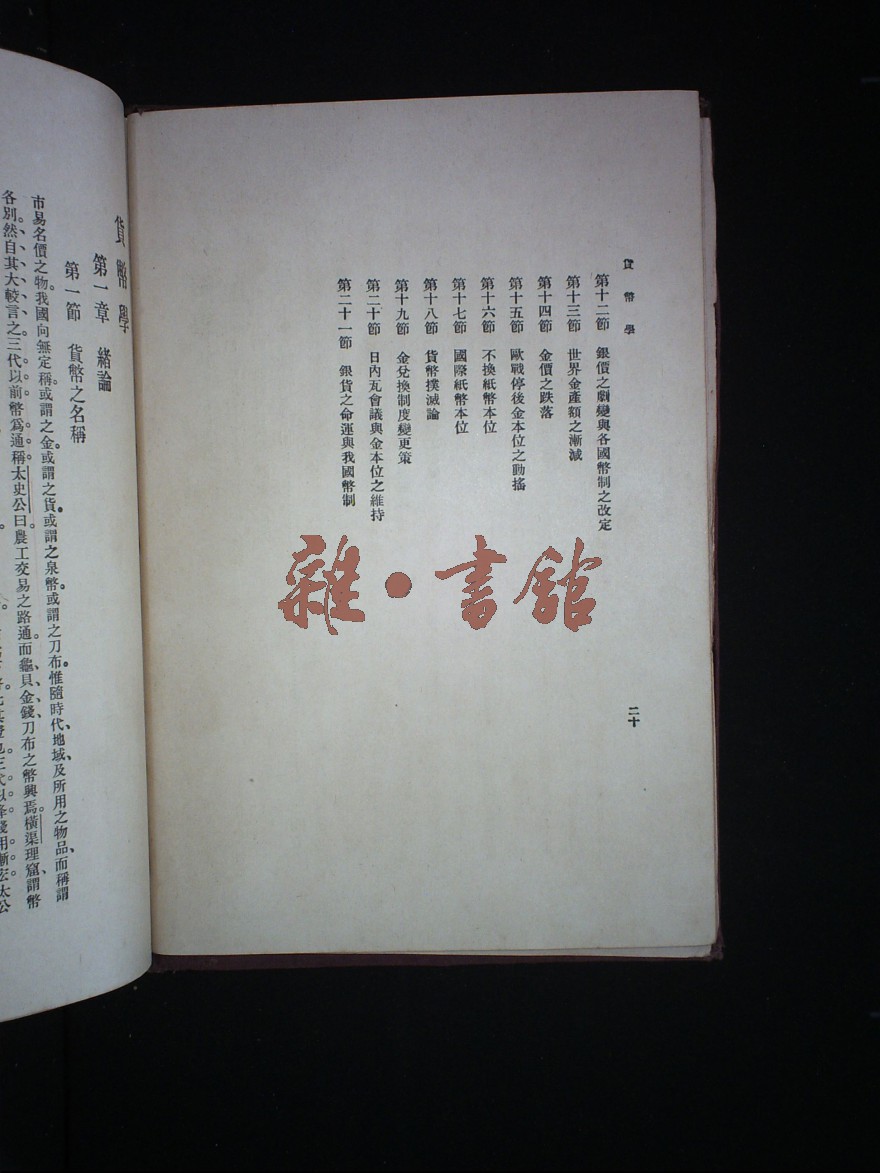 貨幣學
第十二節 銀價之劇變與各國幣制之改定
第十三節 世界金產額之漸減
第十四節 金價之跌落
第十五節 歐戰停後金本位之動搖
第十六節 不換紙幣本位
第十七節 國際紙幣本位
第十八節 貨幣撲滅論
第十九節 金兌換制度變更策
第二十節 日內瓦會議與金本位之維持
第二十一節 銀貨之命運與我國幣制
二十
雜·書館
貨幣學
第一章 緒論
第一節 貨幣之名稱
市易名價之物我國向無定稱或謂之金或謂之貨或謂之泉幣或謂之刀布惟隨時代、地域及所用之物品、而稱謂
各別。然自其大較言之。三代以前幣爲通稱太史公曰。農工交易之路通。而龜、貝、金、錢、刀布之幣興焉。橫渠理窟、謂幣